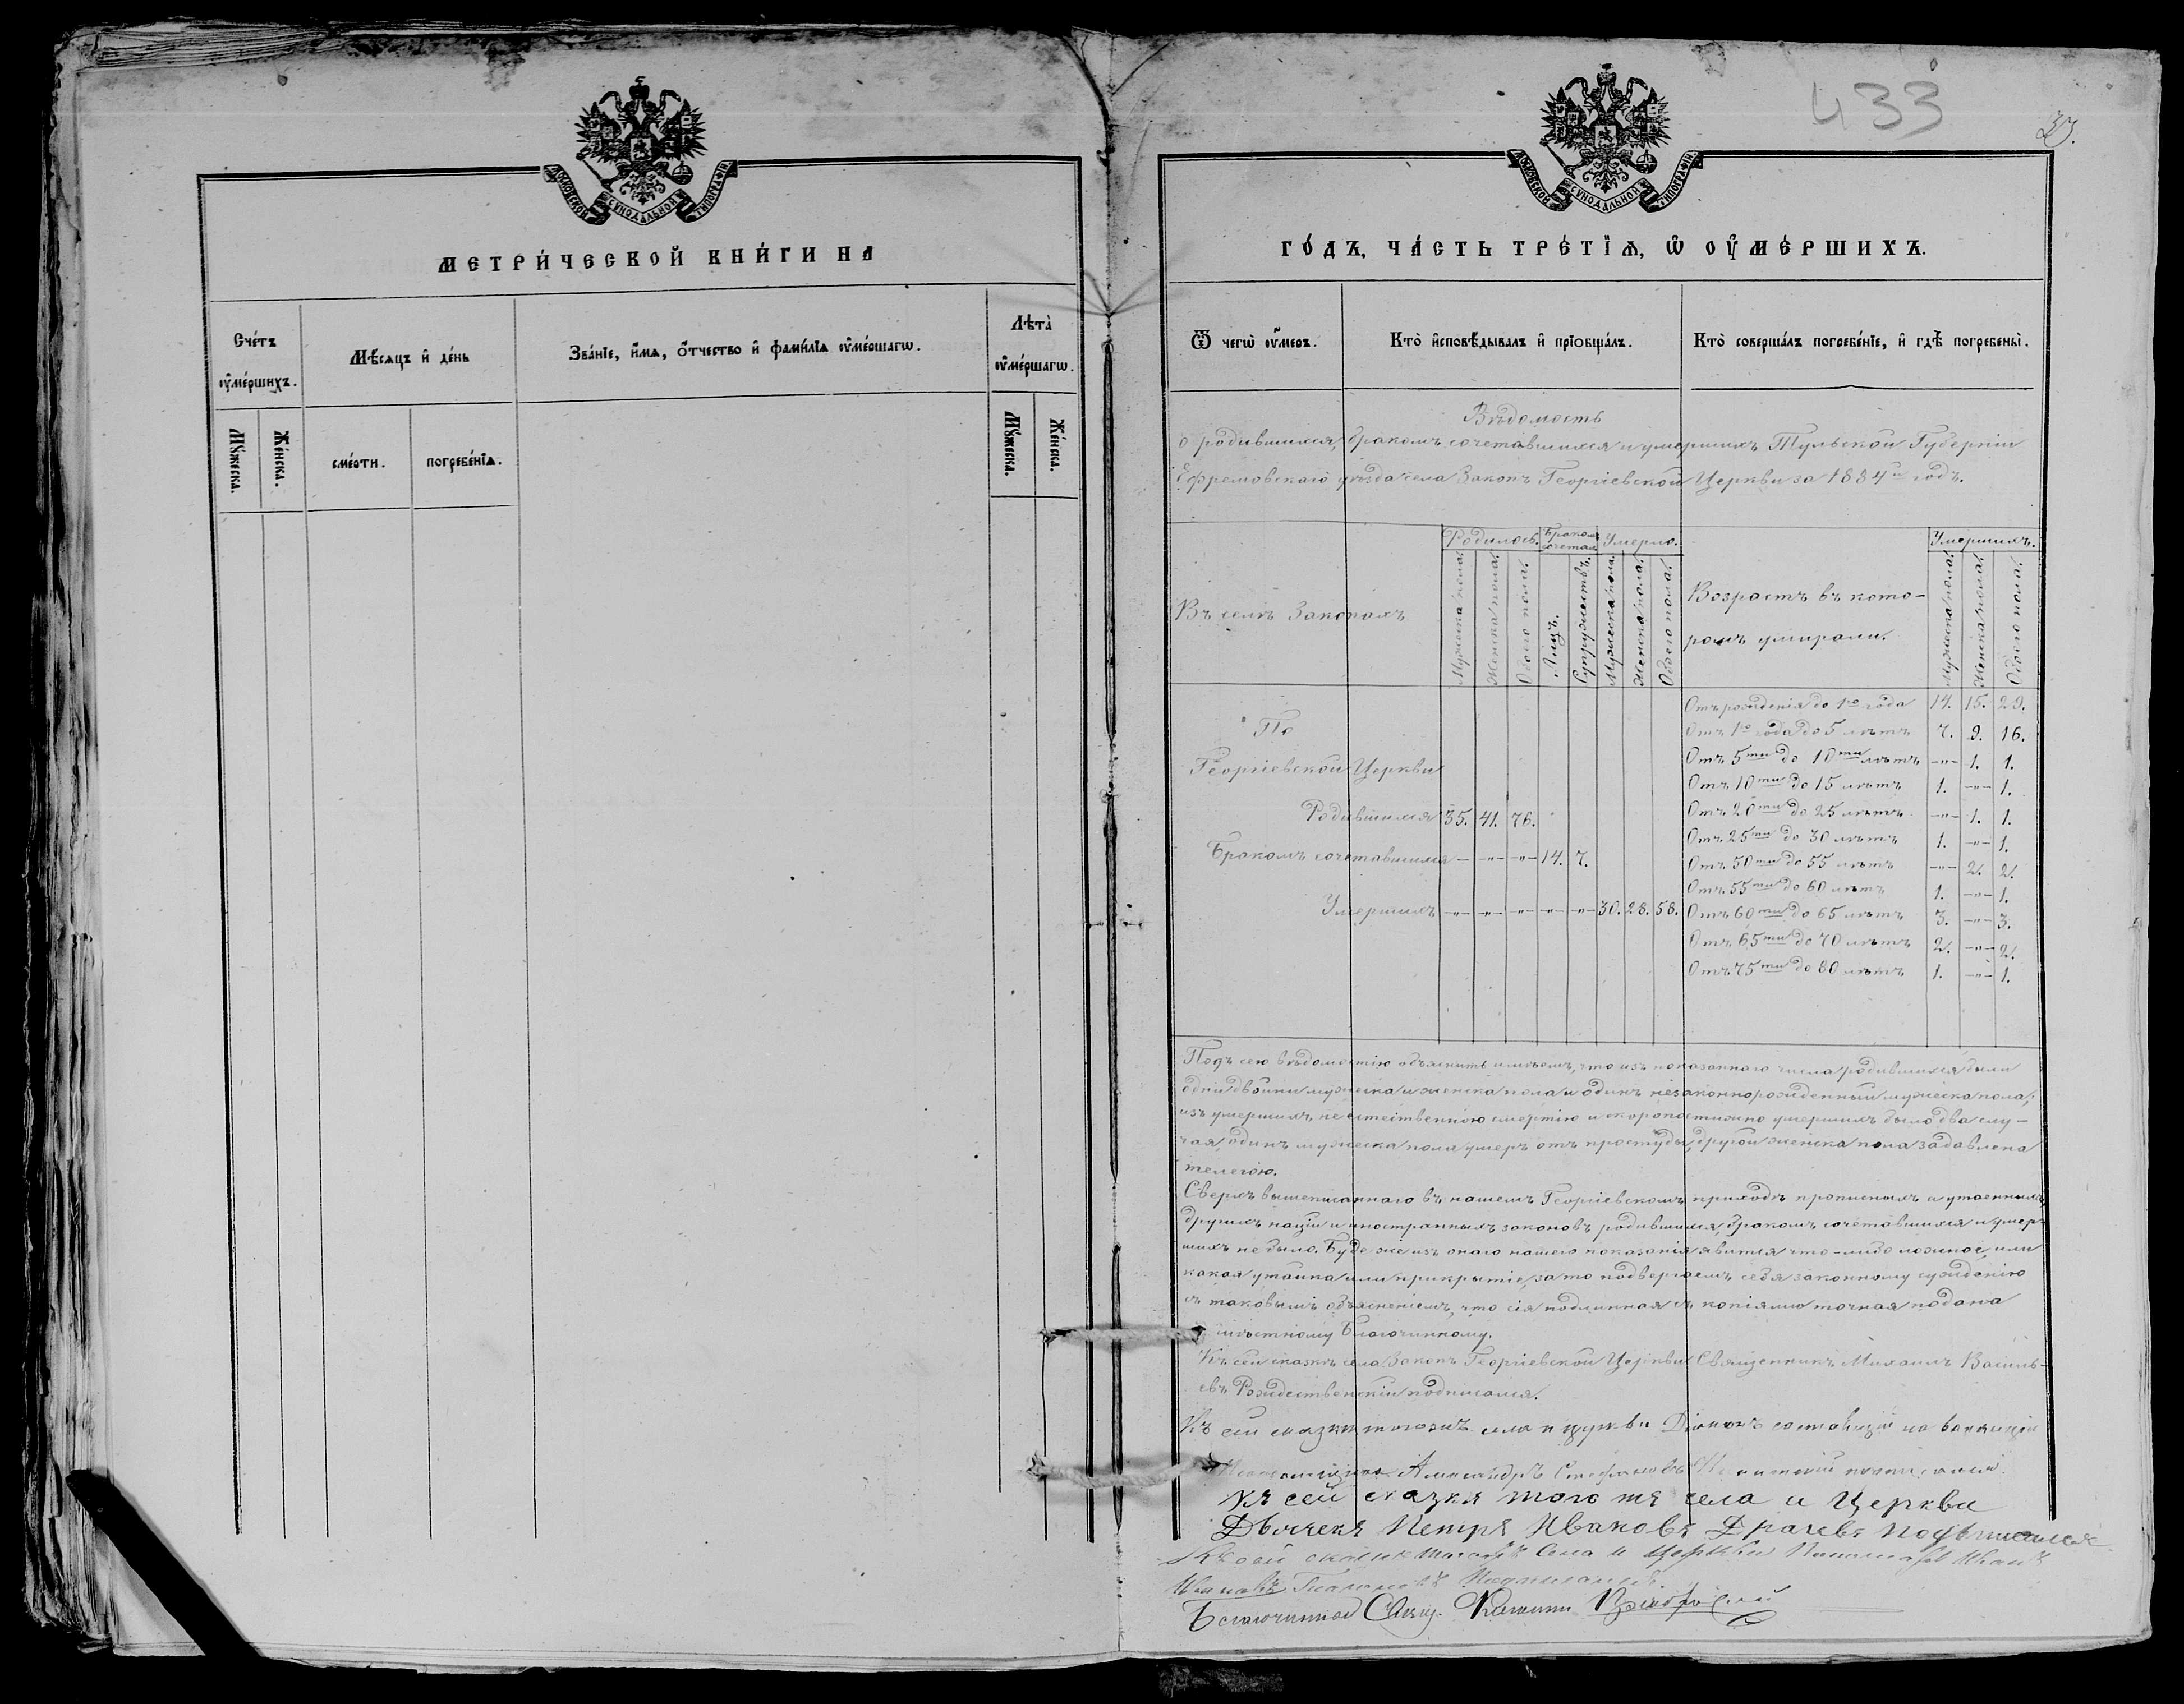 МОСКОВСКОЙ СУНОДАЛЬНОЙ ТИПОГРАФІИ
МЕТРИ́ЧЕСКОЙ КНИ́ГИ НА
Сче́тъ ᲂу҆ме́ршихъ.
Мѣ́сяцъ и҆ де́нь
Зва́нїе, и҆́мѧ, ѻ҆́тчество и҆ фами́лїѧ ᲂу҆ме́ршагѡ.
Лѣта̀ ᲂу҆ме́ршагѡ.
Мꙋ́жеска.
Же́нска.
сме́рти.
погребе́нїѧ.
Мꙋ́жеска.
Же́нска.
433
МОСКОВСКОЙ СУНОДАЛЬНОЙ ТИПОГРАФІИ
ГО́ДЪ, ЧА́СТЬ ТРЕ́ТЇѦ, Ѡ҆ ОУ҆МЕ́РШИХЪ.
Ѿ чегѡ̀ ᲂу҆́меръ.
Кто̀ и҆сповѣ́дывалъ и҆ прїѡбща́лъ.
Кто̀ соверша́лъ погребе́нїе, и҆ гдѣ̀ погребены̀.
Вѣдомость
о родившихся, бракомъ сочетавшихся и умершихъ Тульской Губерніи
Ефремовскаго уѣзда села Закопъ Георгіевской Церкви за 1884й годъ.
Въ селѣ Закопахъ
Родилось.
Бракомъ сочетал.
Умерло.
Мужеска пола.
Женска пола.
Обоего пола.
Лицъ.
Супружествъ.
Мужеска пола.
Женска пола.
Обоего пола.
Возрастъ въ кото-
ромъ умирали.
Умершихъ.
Мужеска пола.
Женска пола.
Обоего пола.
По
Георгіевской Церкви
Родившихся 35. 41. 76.
Бракомъ сочетавшихся — -"- -"- 14. 7.
Умершихъ -"- -"- -"- -"- -"- 30. 28. 58.
Отъ рожденія до 1го года 14. 15. 29.
Отъ 1го года до 5 лѣтъ 7. 9. 16.
Отъ 5ти до 10ти лѣтъ -"- 1. 1.
Отъ 10ти до 15 лѣтъ 1. -"- 1.
Отъ 20ти до 25 лѣтъ -"- 1. 1.
Отъ 25ти до 30 лѣтъ 1. -"- 1.
Отъ 50ти до 55 лѣтъ -"- 2. 2.
Отъ 55ти до 60 лѣтъ 1. -"- 1.
Отъ 60ти до 65 лѣтъ 3. -"- 3.
Отъ 65ти до 70 лѣтъ 2. -"- 2.
Отъ 75ти до 80 лѣтъ 1. -"- 1.
Подъ сею вѣдомостію объяснить имѣемъ, что изъ показаннаго числа родившихся были
одни двойни мужеска и женска пола и одинъ незаконнорожденный мужеска пола;
изъ умершихъ не естественною смертію и скоропостижно умершихъ было два слу-
чая, одинъ мужеска пола умеръ отъ простуды, другой женска пола задавлена
телегою.
Сверхъ вышеписаннаго въ нашемъ Георгіевскомъ приходѣ прописныхъ и утаенныхъ,
другихъ націй и иностранныхъ законовъ родившихся, бракомъ сочетавшихся и умер-
шихъ не было. Буде же изъ онаго нашего показанія явится что-либо ложное, или
какая утайка или прикрытіе, за то подвергаемъ себя законному сужденію
съ таковымъ объясненіемъ, что сія подлинная съ копіями точная подана
мѣстному Благочинному.
Къ сей сказкѣ села Закопъ Георгіевской Церкви Священникъ Михаилъ Василь-
евъ Рождественскій подписался.
Къ сей сказкѣ тогожъ села и церкви Діаконъ состоящій на вакансіи
Псаломщика Александръ Стефановъ подписался.
Къ сей сказкѣ того же села и Церкви
Дьячекъ Петръ Ивановъ Драчевъ подписался
Къ сей сказкѣ тогожъ Села и Церкви Пономарь Иванъ
Ивановъ Подписался
Благочинной Свящ.